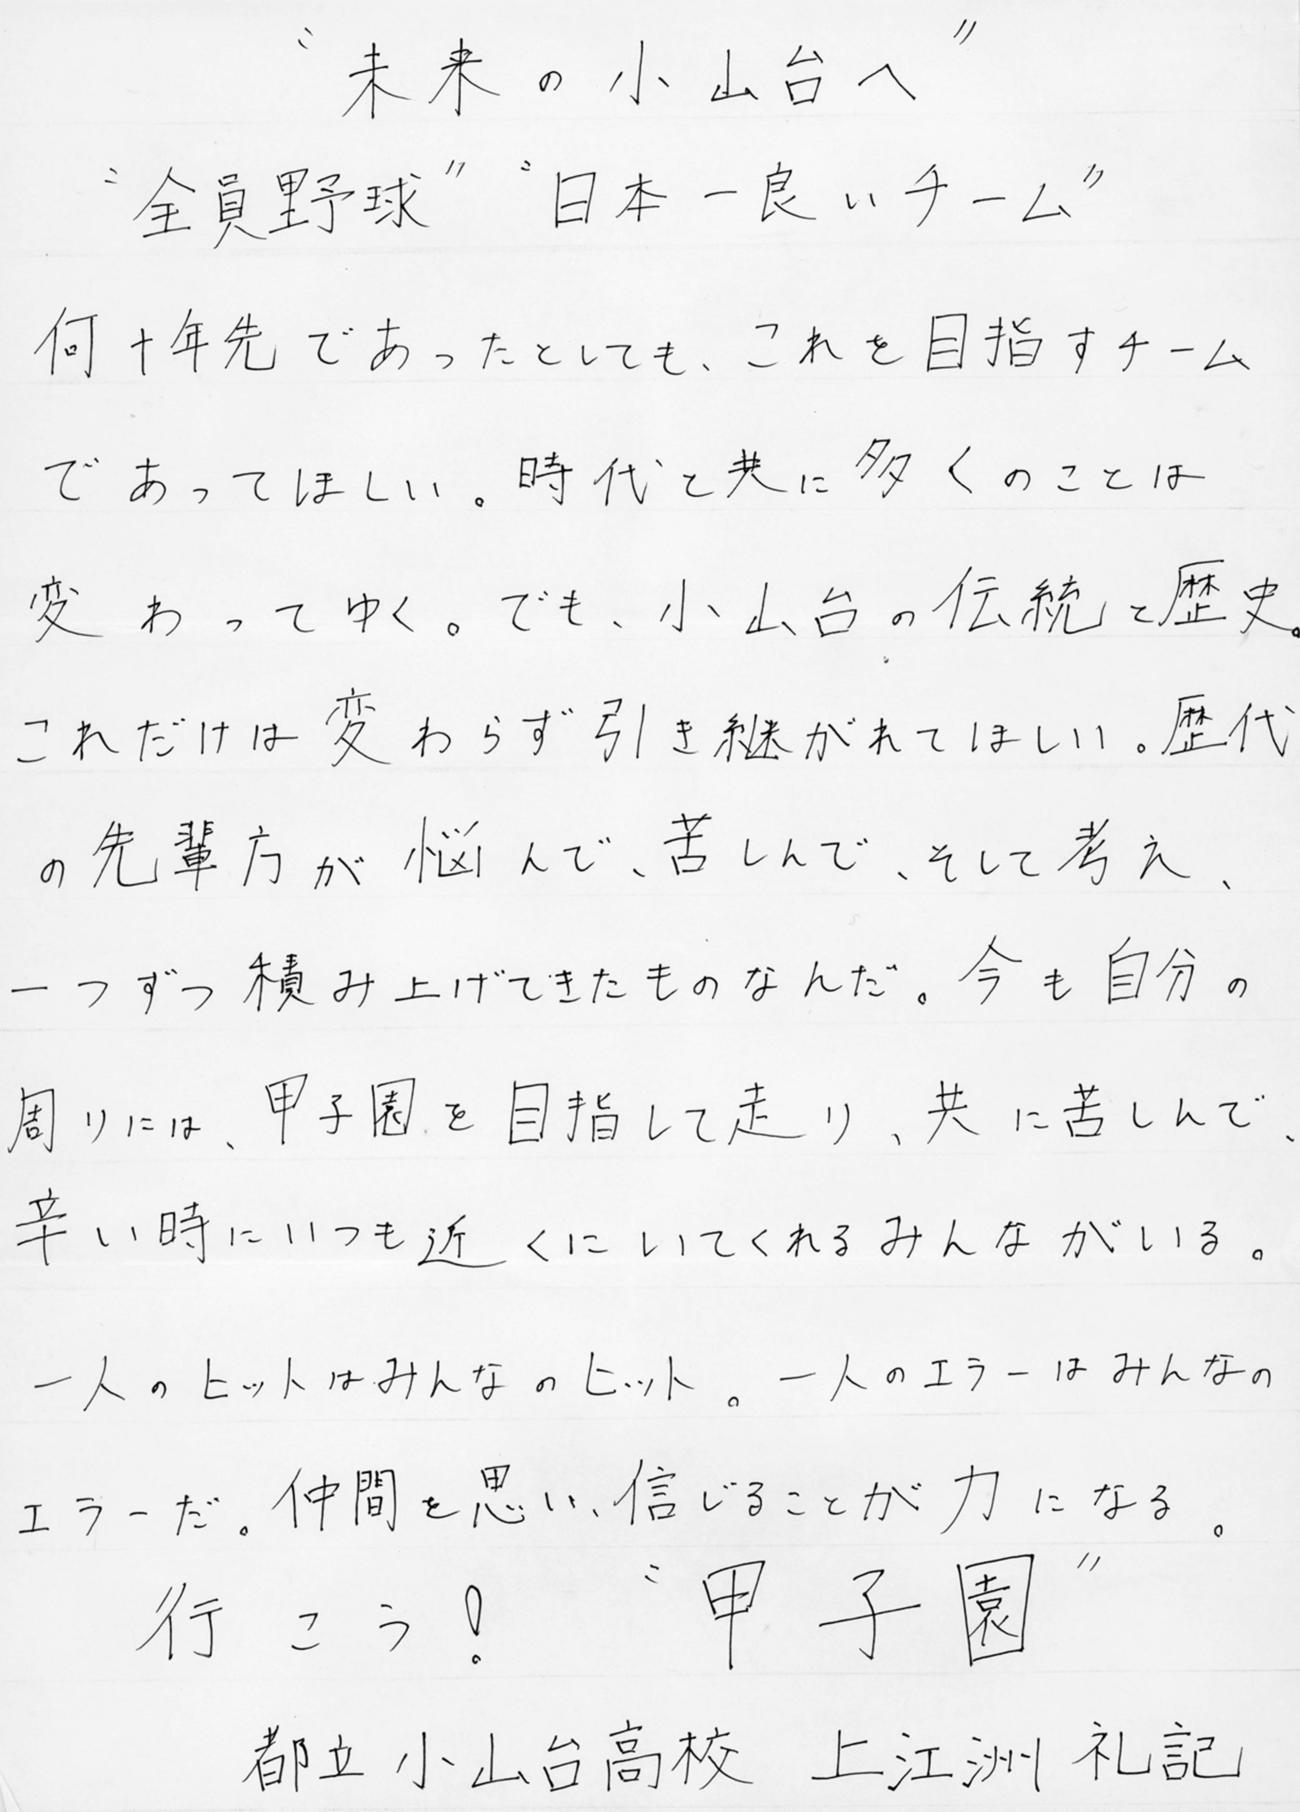 〝未来の小山台へ〟
〝全員野球〟〝日本一良いチーム〟
何十年先であったとしても、これを目指すチーム
であってほしい。時代と共に多くのことは
変わってゆく。でも、小山台の伝統と歴史。
これだけは変わらず引き継がれてほしい。歴代
の先輩方が悩んで、苦しんで、そして考え、
一つずつ積み上げてきたものなんだ。今も自分の
周りには、甲子園を目指して走り、共に苦しんで、
辛い時にいつも近くにいてくれるみんながいる。
一人のヒットはみんなのヒット。一人のエラーはみんなの
エラーだ。仲間を思い、信じることが力になる。
行こう! 〝甲子園〟
都立小山台高校 上江洲礼記